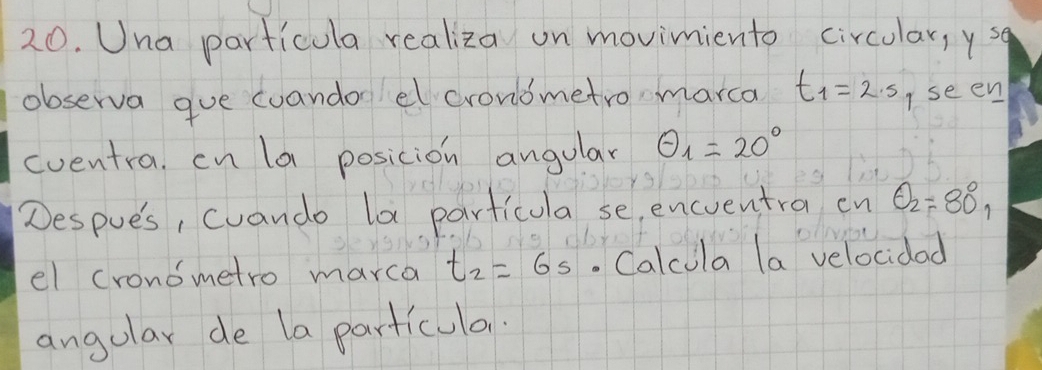 20. Una partícula realiza un movimiento circular, y se
observa que cuando el cronómetro marca t₁=2s, se en
cuentra. en la posición angular θ₁=20°
Después, cuando la partícula se encuentra en θ₂=80°,
el cronómetro marca t₂=6s. Calcula la velocidad
angular de la partícula.